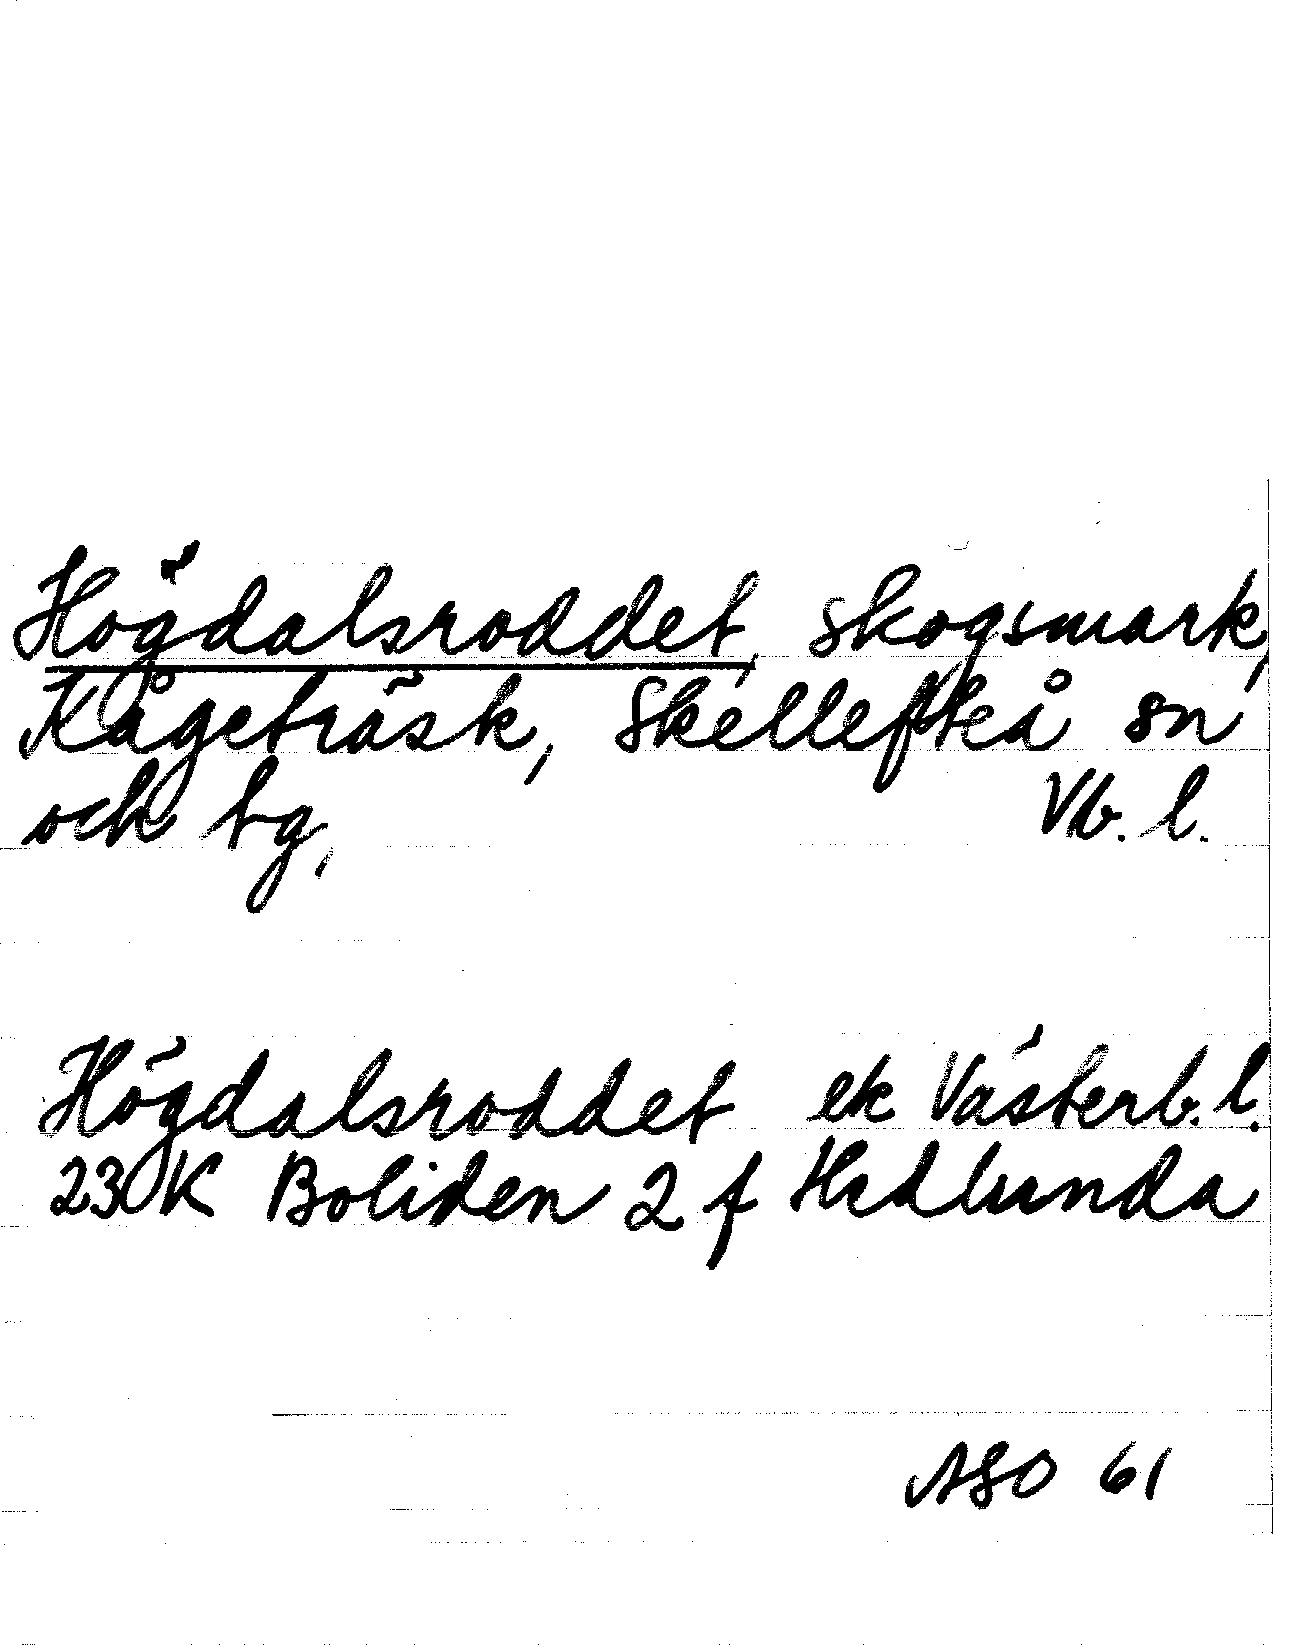 Högdalsroddet, skogsmark,
Kågeträsk, Skellefteå sn
och tg, Vb. l.
Högdalsroddet ek Västerb. l.
23K Boliden 2 f Hedlunda
ASO 61